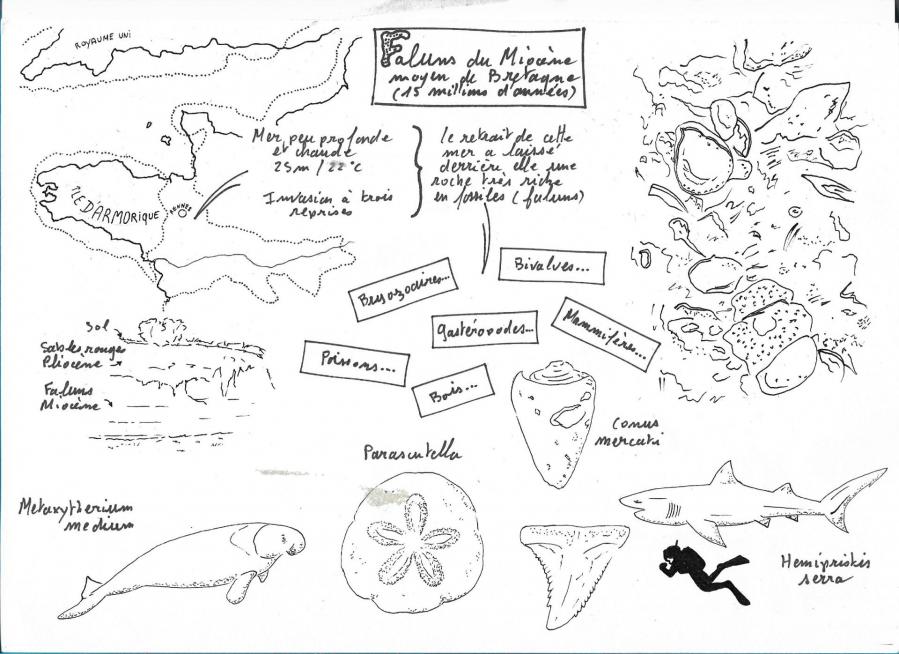 ROYAUME UNI
Faluns du Miocène
moyen de Bretagne
(15 millions d'années)
Mer peu profonde
et chaude
25m / 22°C
Invasion à trois
reprises
le retrait de cette
mer a laissé
derrière elle une
roche très riche
en fossiles (faluns)
ÎLE D'ARMORIQUE
RENNES
Bryozoaires...
Bivalves...
gastéropodes...
Mammifères...
Poissons...
Bois...
sol
Sables rouges
Pliocène
Faluns
Miocène
Conus
mercati
Parascutella
Metaxytherium
medium
Hemipristis
serra